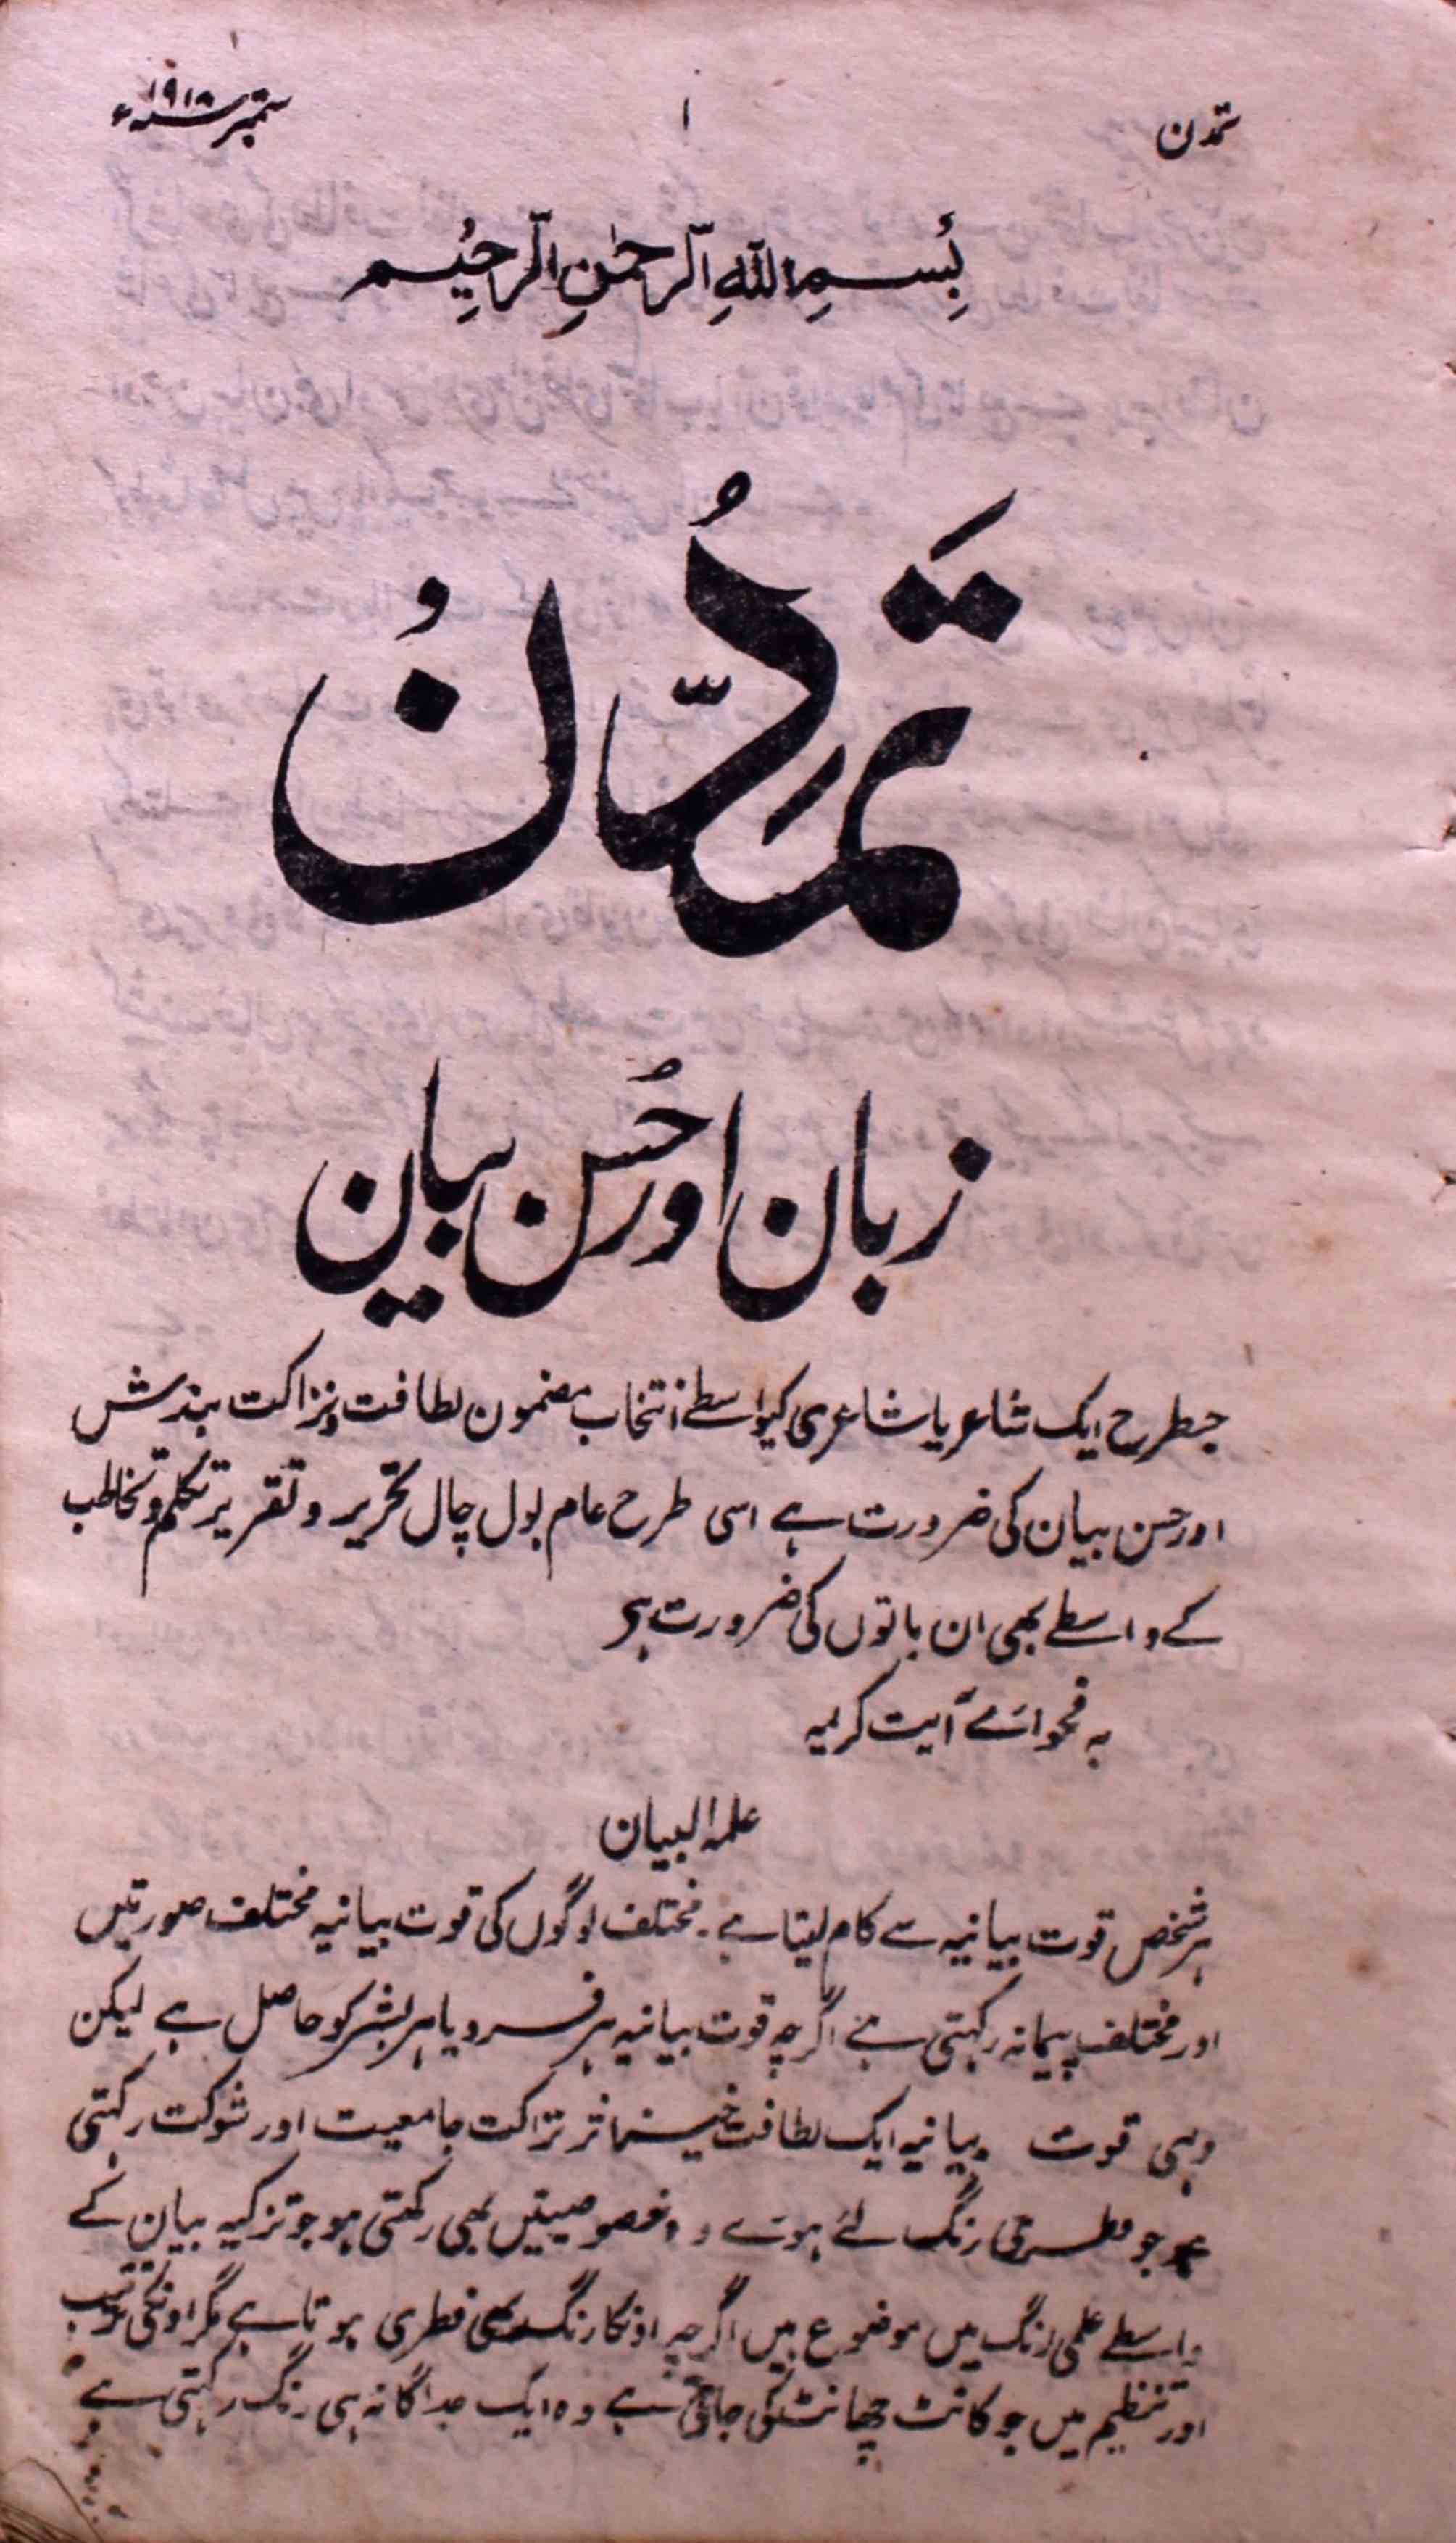 تمدن
۱
ستمبر ۱۹۱۸ء
بِسمِ اللهِ الرَّحمٰنِ الرَّحِیم
تَمَدُّنُ
زبان اور حُسن بیان
جطرح ایک شاعر یا شاعری کیواسطے انتخاب مضمون لطافت ونزاکت بندش
اور حسن بیان کی ضرورت ہے اسی طرح عام بول چال تحریر و تقریر تکلم و تخاطب
کے واسطے بھی ان باتوں کی ضرورت ہی
بہ فحوائے آیت کریمہ
علمہ البیان
ہر شخص قوت بیانیہ سے کام لیتا ہے۔ مختلف لوگوں کی قوت بیانیہ مختلف صورتیں
اور مختلف پیمانہ رکہتی ہے اگرچہ قوت بیانیہ ہر فرد یا ہر بشر کو حاصل ہے لیکن
وہی قوت بیانیہ ایک لطافت خیز نزاکت جامعیت اور شوکت رکہتی
جو فطرتی رنگ لئے ہوے وہ خصوصیتیں بھی رکھتی ہو جو تزکیہ بیان کے
واسطے علمی رنگ میں موضوع ہیں اگرچہ اونکا رنگ بھی فطری ہوتا ہے مگر اونکی ترتیب
اور تنظیم میں جو کانٹ چھانٹ کی جاتی ہے وہ ایک جداگانہ ہی رنگ رکہتی ہے